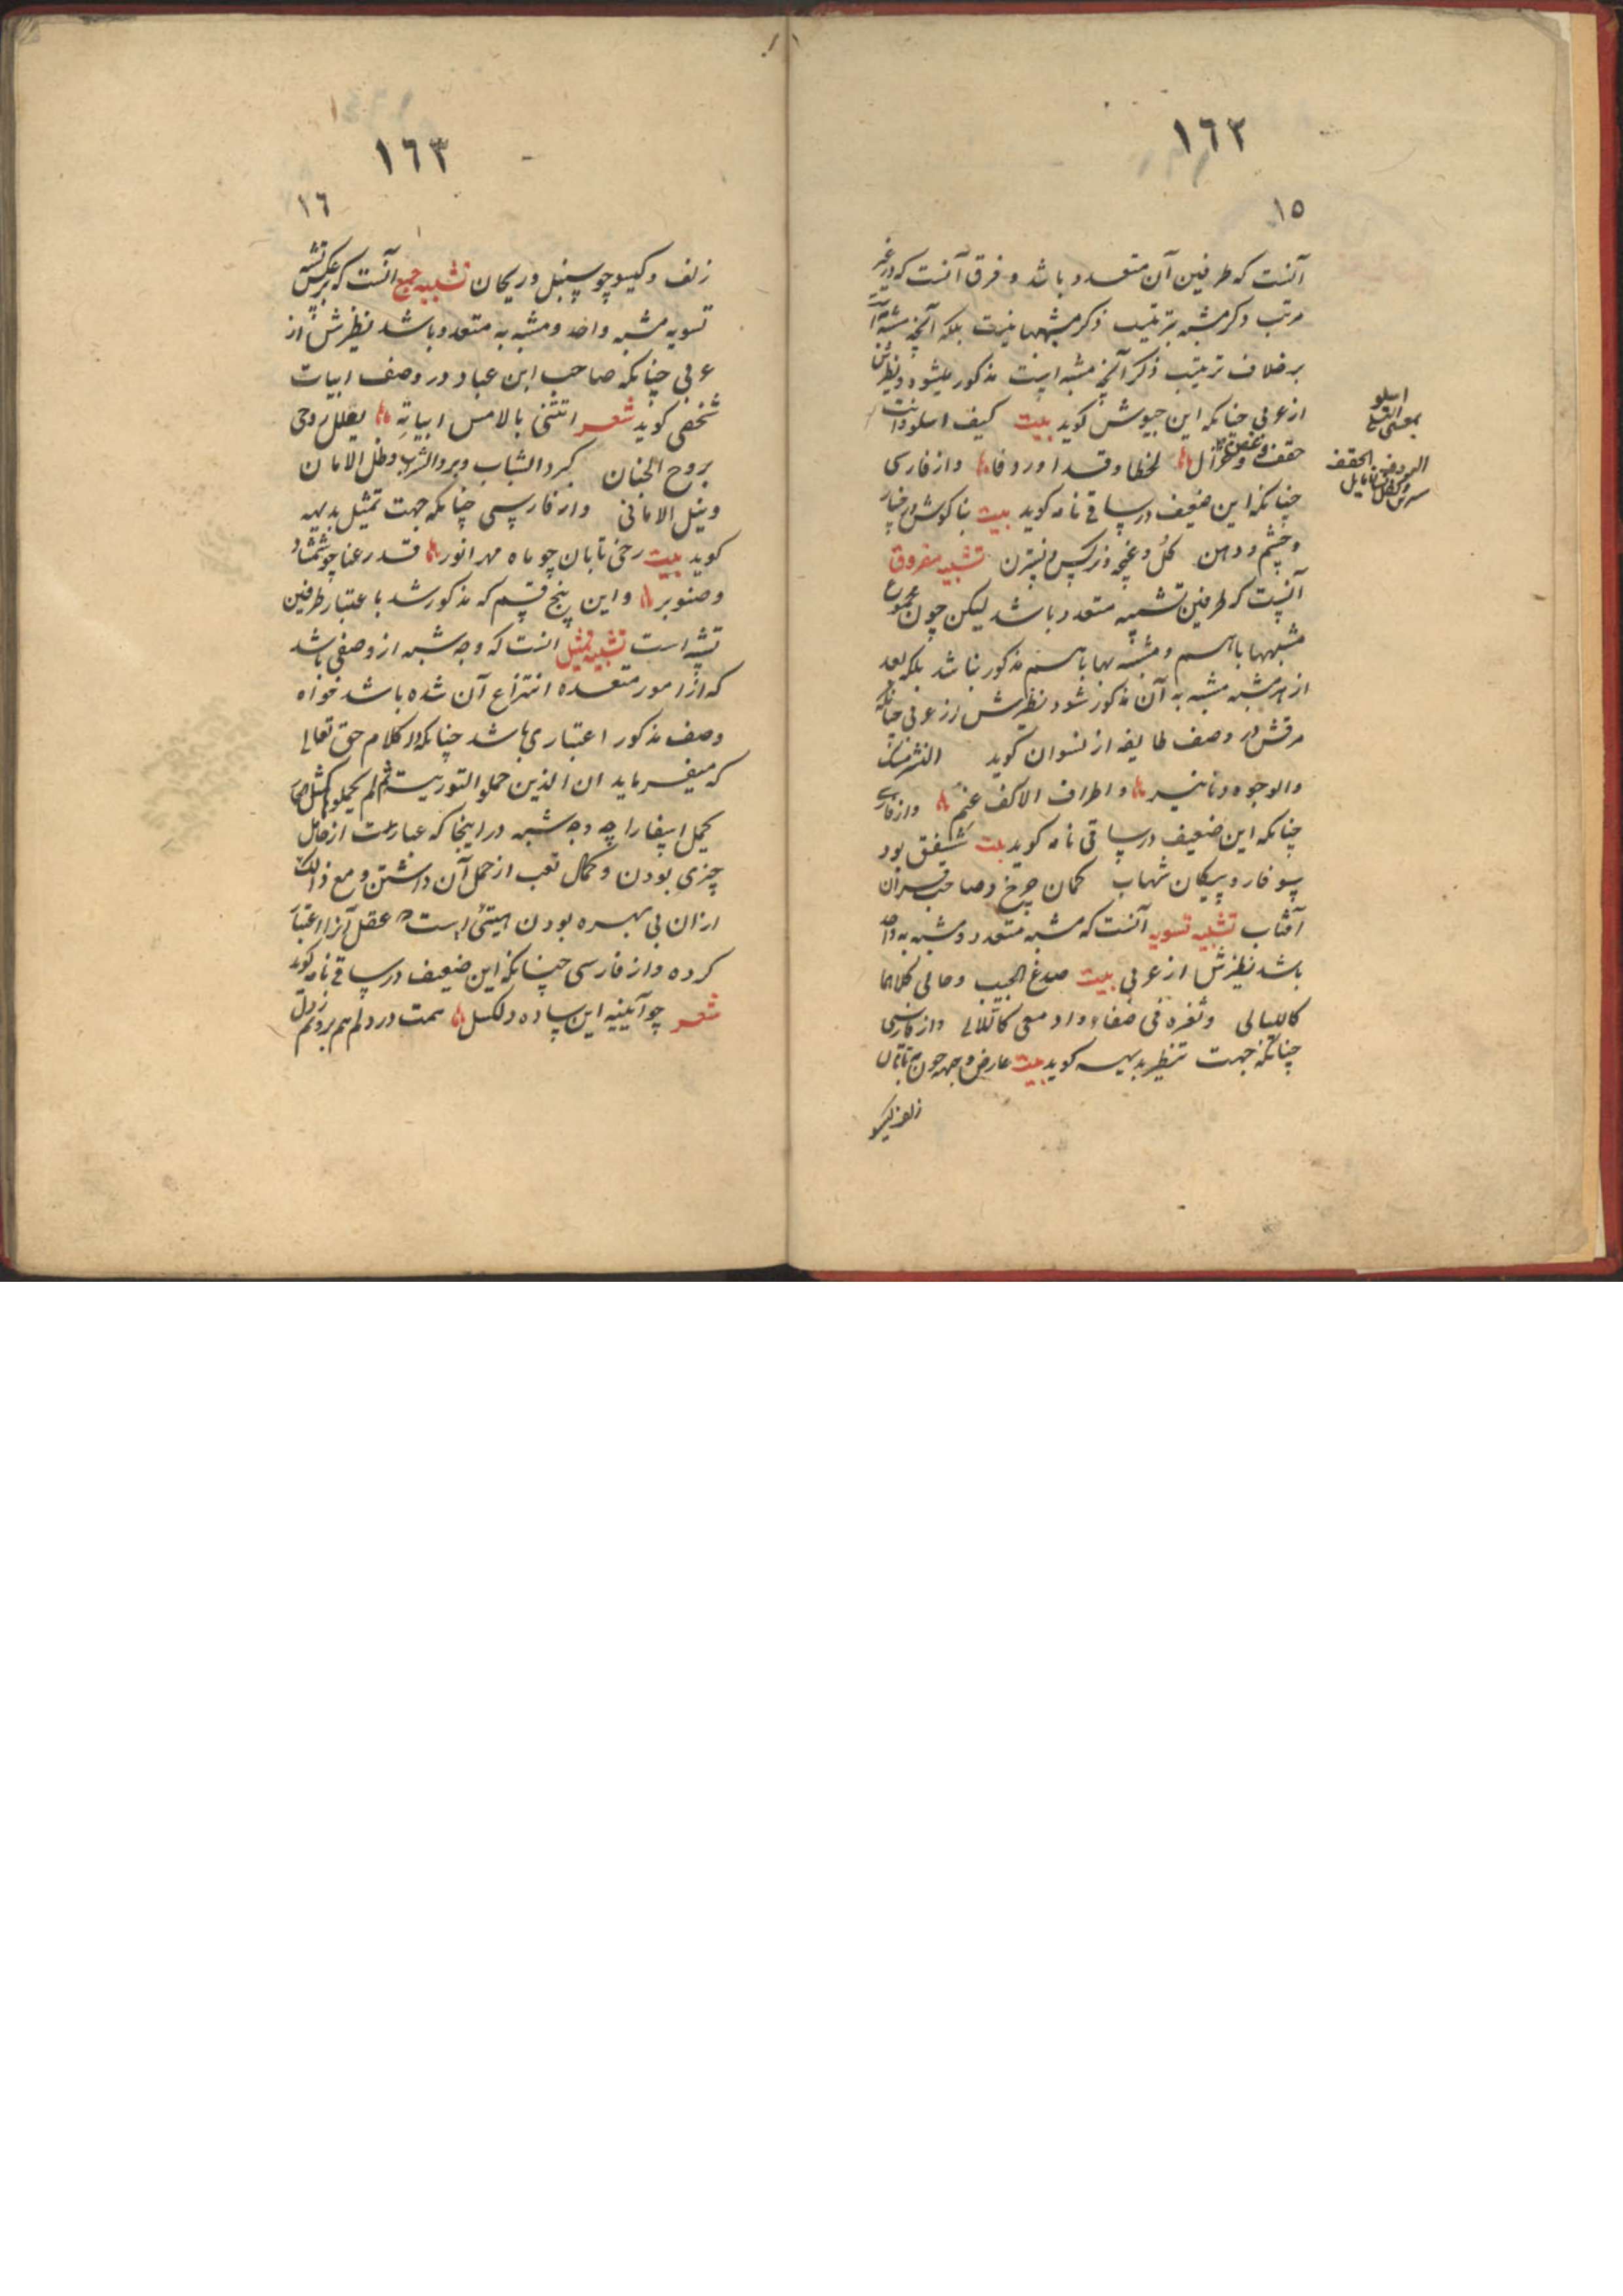 ١٦٢
١٥
آنست که طرفین آن متعدد باشد و فرق آنست که در غیر
مرتب ذکر مشبه بترتیب ذکر مشبهها نیست بلکه آنچه مشبه است
برخلاف ترتیب ذکر آنچه مشبه است مذکور میشود و نظیرش
از عربی چنانکه ابن حیوش کوید بیت کیف اسلو وانت
حقف و غصن و غزال لحظا و قدا و ردفا وازفارسی
چنانکه این ضعیف در ساقی نامه کوید بیت بناکوش و رخسار
و چشم و دهن کل و غنچه و نرکس و نسترن تشبیه مفروق
آنست که طرفین تشبیه متعدد باشد لیکن چون مجموع
مشبهها باهم و مشبه بها باهم مذکور نباشد بلکه بعد
از هر مشبه مشبه به آن مذکور شود نظیرش از عربی چنانکه
مرقش در وصف طایفه از نسوان کوید النشر مسک
والوجوه دنانیر و اطراف الاکف عنم وازفارسی
چنانکه این ضعیف در ساقی نامه کوید بیت شفق بود
سوفار و پیکان شهاب کمان چرخ و صاحبقران
آفتاب تشبیه تسویه آنست که مشبه متعدد و مشبه به واحد
باشد نظیرش از عربی بیت صدغ الحبیب و حالی کلاهما
کاللیالی وثغره فی صفاء وادمعی کاللالی وازفارسی
چنانکه جهت تنظیر بدیهه کوید بیت عارض و جبهه چون مه تابان
زلف و کیسو
اسلو
بمعنی التسلی
الردف الحقف
سرین رمل مایل
١٦٣
١٦
زلف و کیسو چو سنبل و ریحان تشبیه جمع آنست که برعکس تشبیه
تسویه مشبه واحد و مشبه به متعدد باشد نظیرش از
عربی چنانکه صاحب ابن عباد در وصف ابیات
شخصی کوید شعر اتتنی بالامس ابیاته یعلل روحی
بروح الجنان کبرد الشباب وبرد الشراب وظل الامان
ونیل الامانی وازفارسی چنانکه جهت تمثیل بدیهه
کوید بیت رخی تابان چو ماه مهر انور قد رعنا چو شمشاد
و صنوبر و این پنج قسم که مذکور شد باعتبار طرفین
تشبیه است تشبیه تمثیل انست که وجه شبه از وصفی باشد
که از امور متعدده انتزاع آن شده باشد خواه
وصف مذکور اعتباری باشد چنانکه در کلام حق تعالی
که میفرماید ان الذین حملوا التوریت ثم لم یحملوها کمثل الحمار
یحمل اسفارا چه وجه شبه در اینجا که عبارتست از حامل
چیزی بودن و کمال تعب از حمل آن داشتن و مع ذالک
ازان بی بهره بودن هیتئی است که عقل آنرا اعتبار
کرده وازفارسی چنانکه این ضعیف در ساقی نامه کوید
شعر چو آیینه این ساده دلکسل همت در دلم هم برونم ز دل